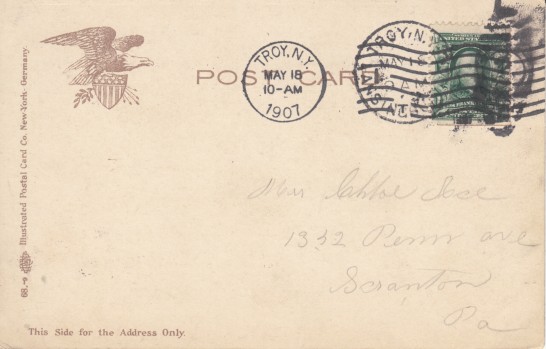 POST CARD
TROY, N.Y.
MAY 18
10-AM
1907
TROY, N.Y.
MAY 18
Miss Chloe
1332 Penn ave
Scranton
Pa
This Side for the Address Only.
68.-9 Illustrated Postal Card Co. New-York-Germany